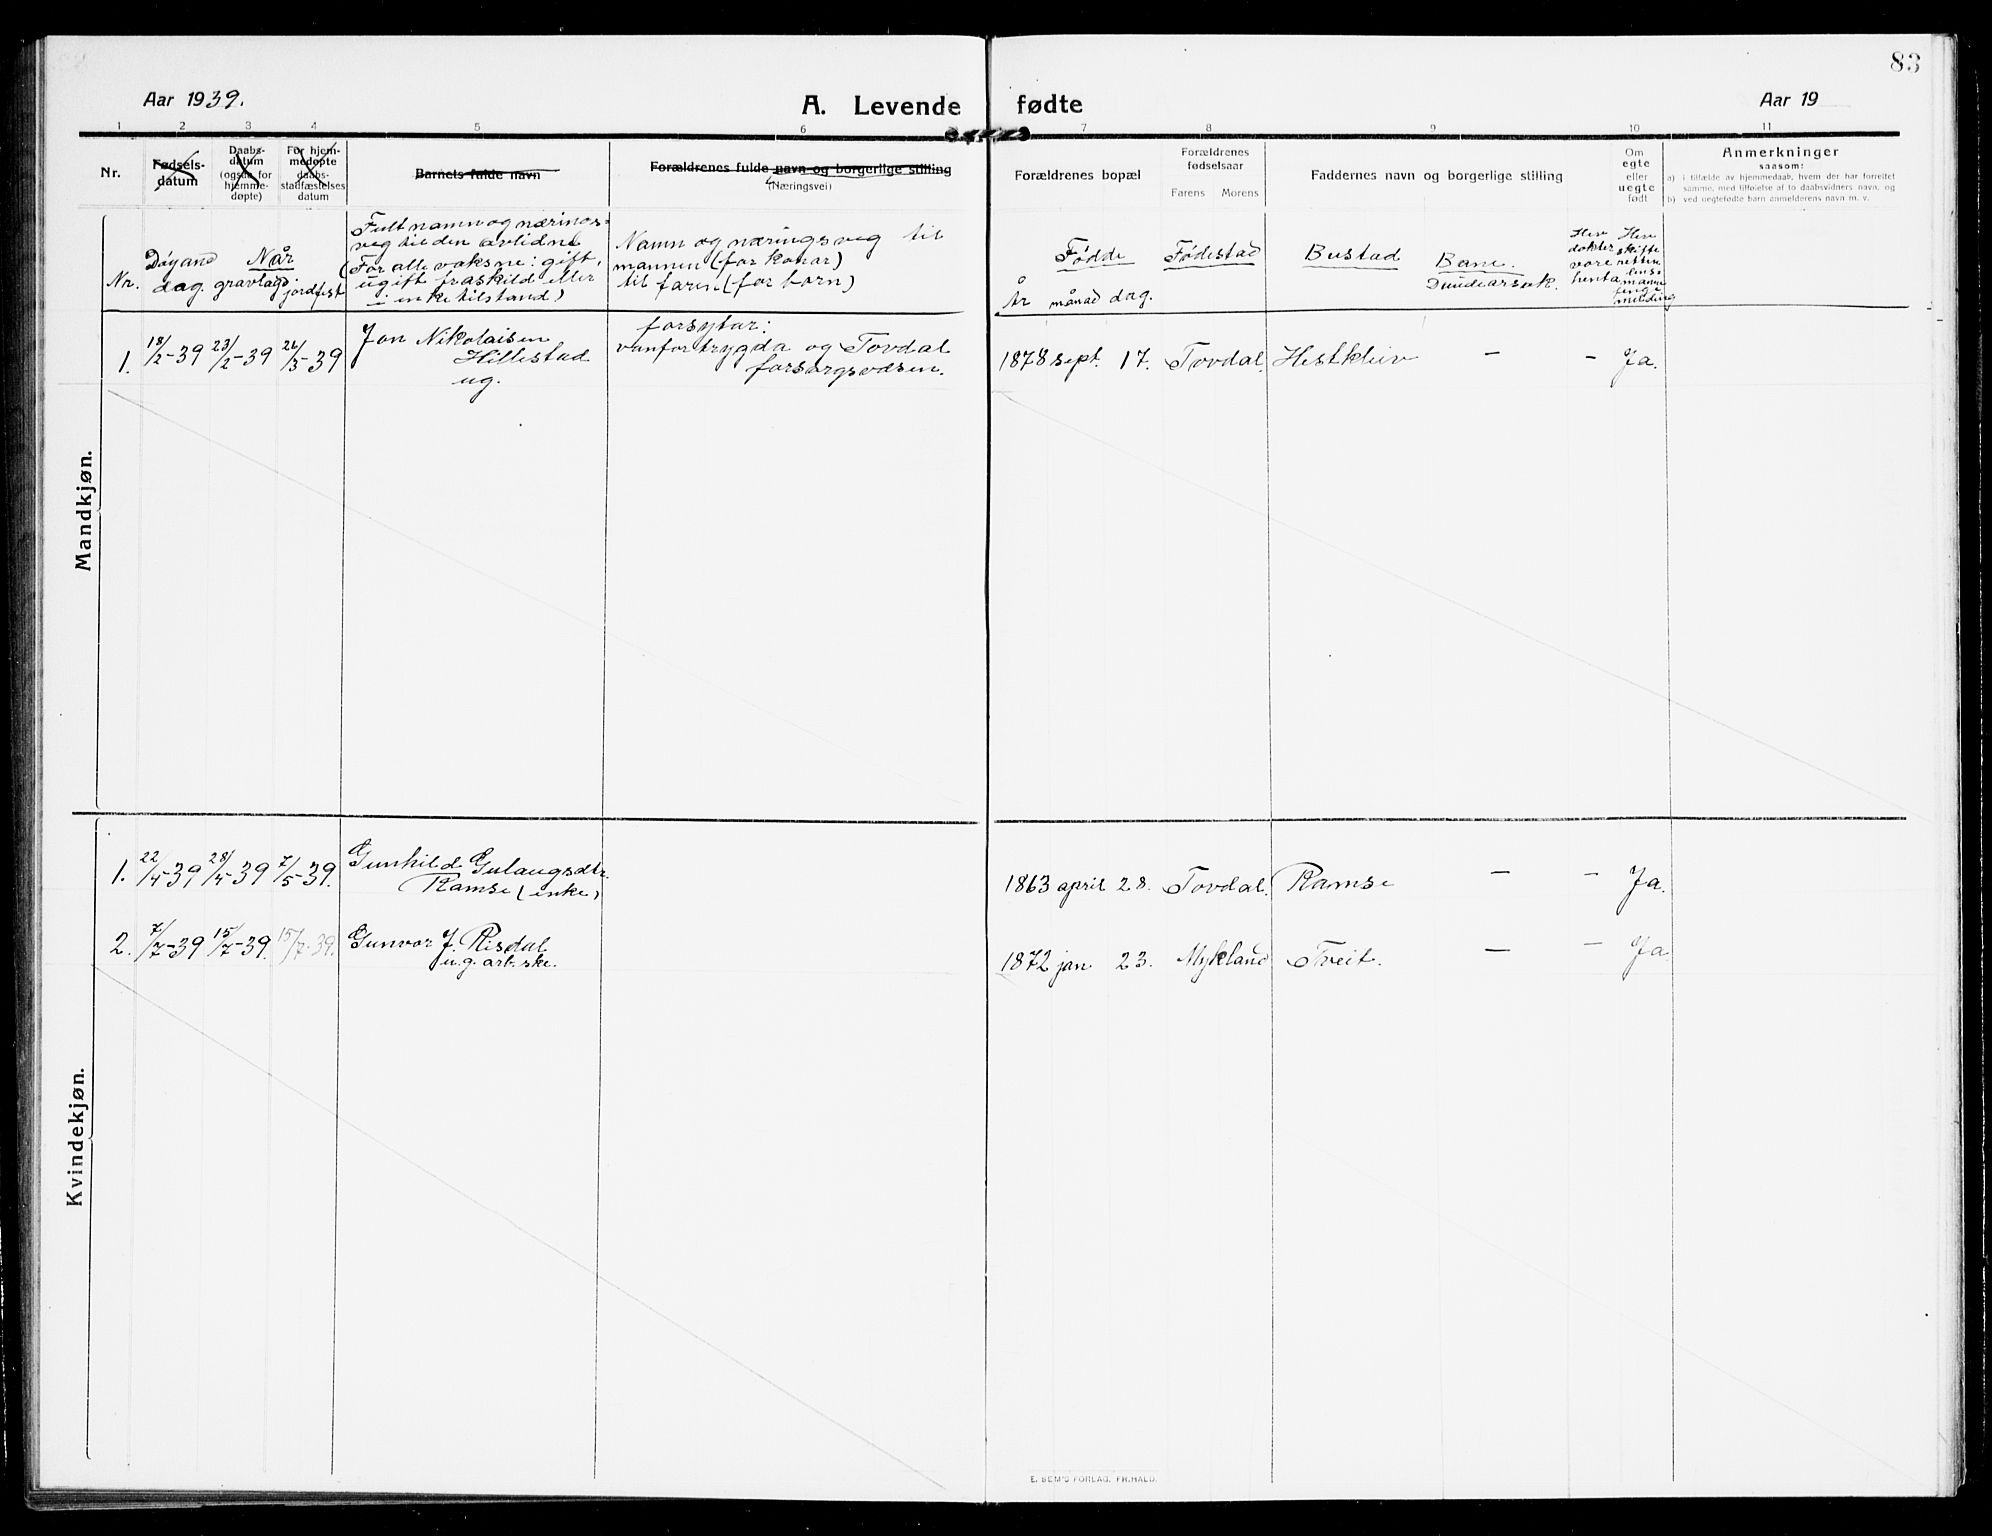 83
Aar 1939.
A. Levende fødte
Aar 19
1 2 3 4 5 6 7 8 9 10 11
Nr.
Fødsels-
datum
Daabs-
datum
(ogsaa for
hjemme-
døpte)
For hjem-
medøpte
daabs-
stadfæstelses
datum
Barnets fulde navn
Forældrenes fulde navn og borgerlige stilling
(Næringsvei)
Forældrenes bopæl
Forældrenes
fødselsaar
Farens Morens
Faddernes navn og borgerlige stilling
Om
egte
eller
uegte
født
Anmerkninger
saasom:
a) i tilfælde av hjemmedaab, hvem der har forrettet
samme, med tilføielse af to daabsvidners navn, og
b) ved uegtefødte barn anmelderens navn m. v.
Nr.
Døyand
dag.
Når
gravlagd jordfest
Fult namn og nærings-
veg til den avlidne
(For alle vaksne: gift,
ugift fraskild eller
i enketilstand)
Namn og næringsveg til
mannen (for konor)
til faren (for born)
Fødde
År månad dag.
Fødestad
Bustad
Bane.
Dundearsak.
Hev
dokter
vore
henta
Hev
skifte
retten
lens-
mann
feng i
melding
Mandkjøn.
1. 18/2-39 23/2-39 26/3-39 Jon Nikolaisen
Hillestad
ug.
forsytar:
vanfortrygda og Tovdal
forsorgsvesen.
1878 sept. 17. Tovdal. Hestkleiv – – Ja.
Kvindekjøn.
1. 22/4-39 28/4-39 7/5-39. Gunhild Gulaugsdtr.
Ramse (enke)
1863 april 28. Tovdal. Ramse – – Ja.
2. 7/7-39 15/7-39. 15/7-39. Gunvor J. Risdal
u.g. arb.ske.
1872 jan. 23. Mykland Tveit. – – Ja.
E. SEM'S FORLAG, FR.HALD.